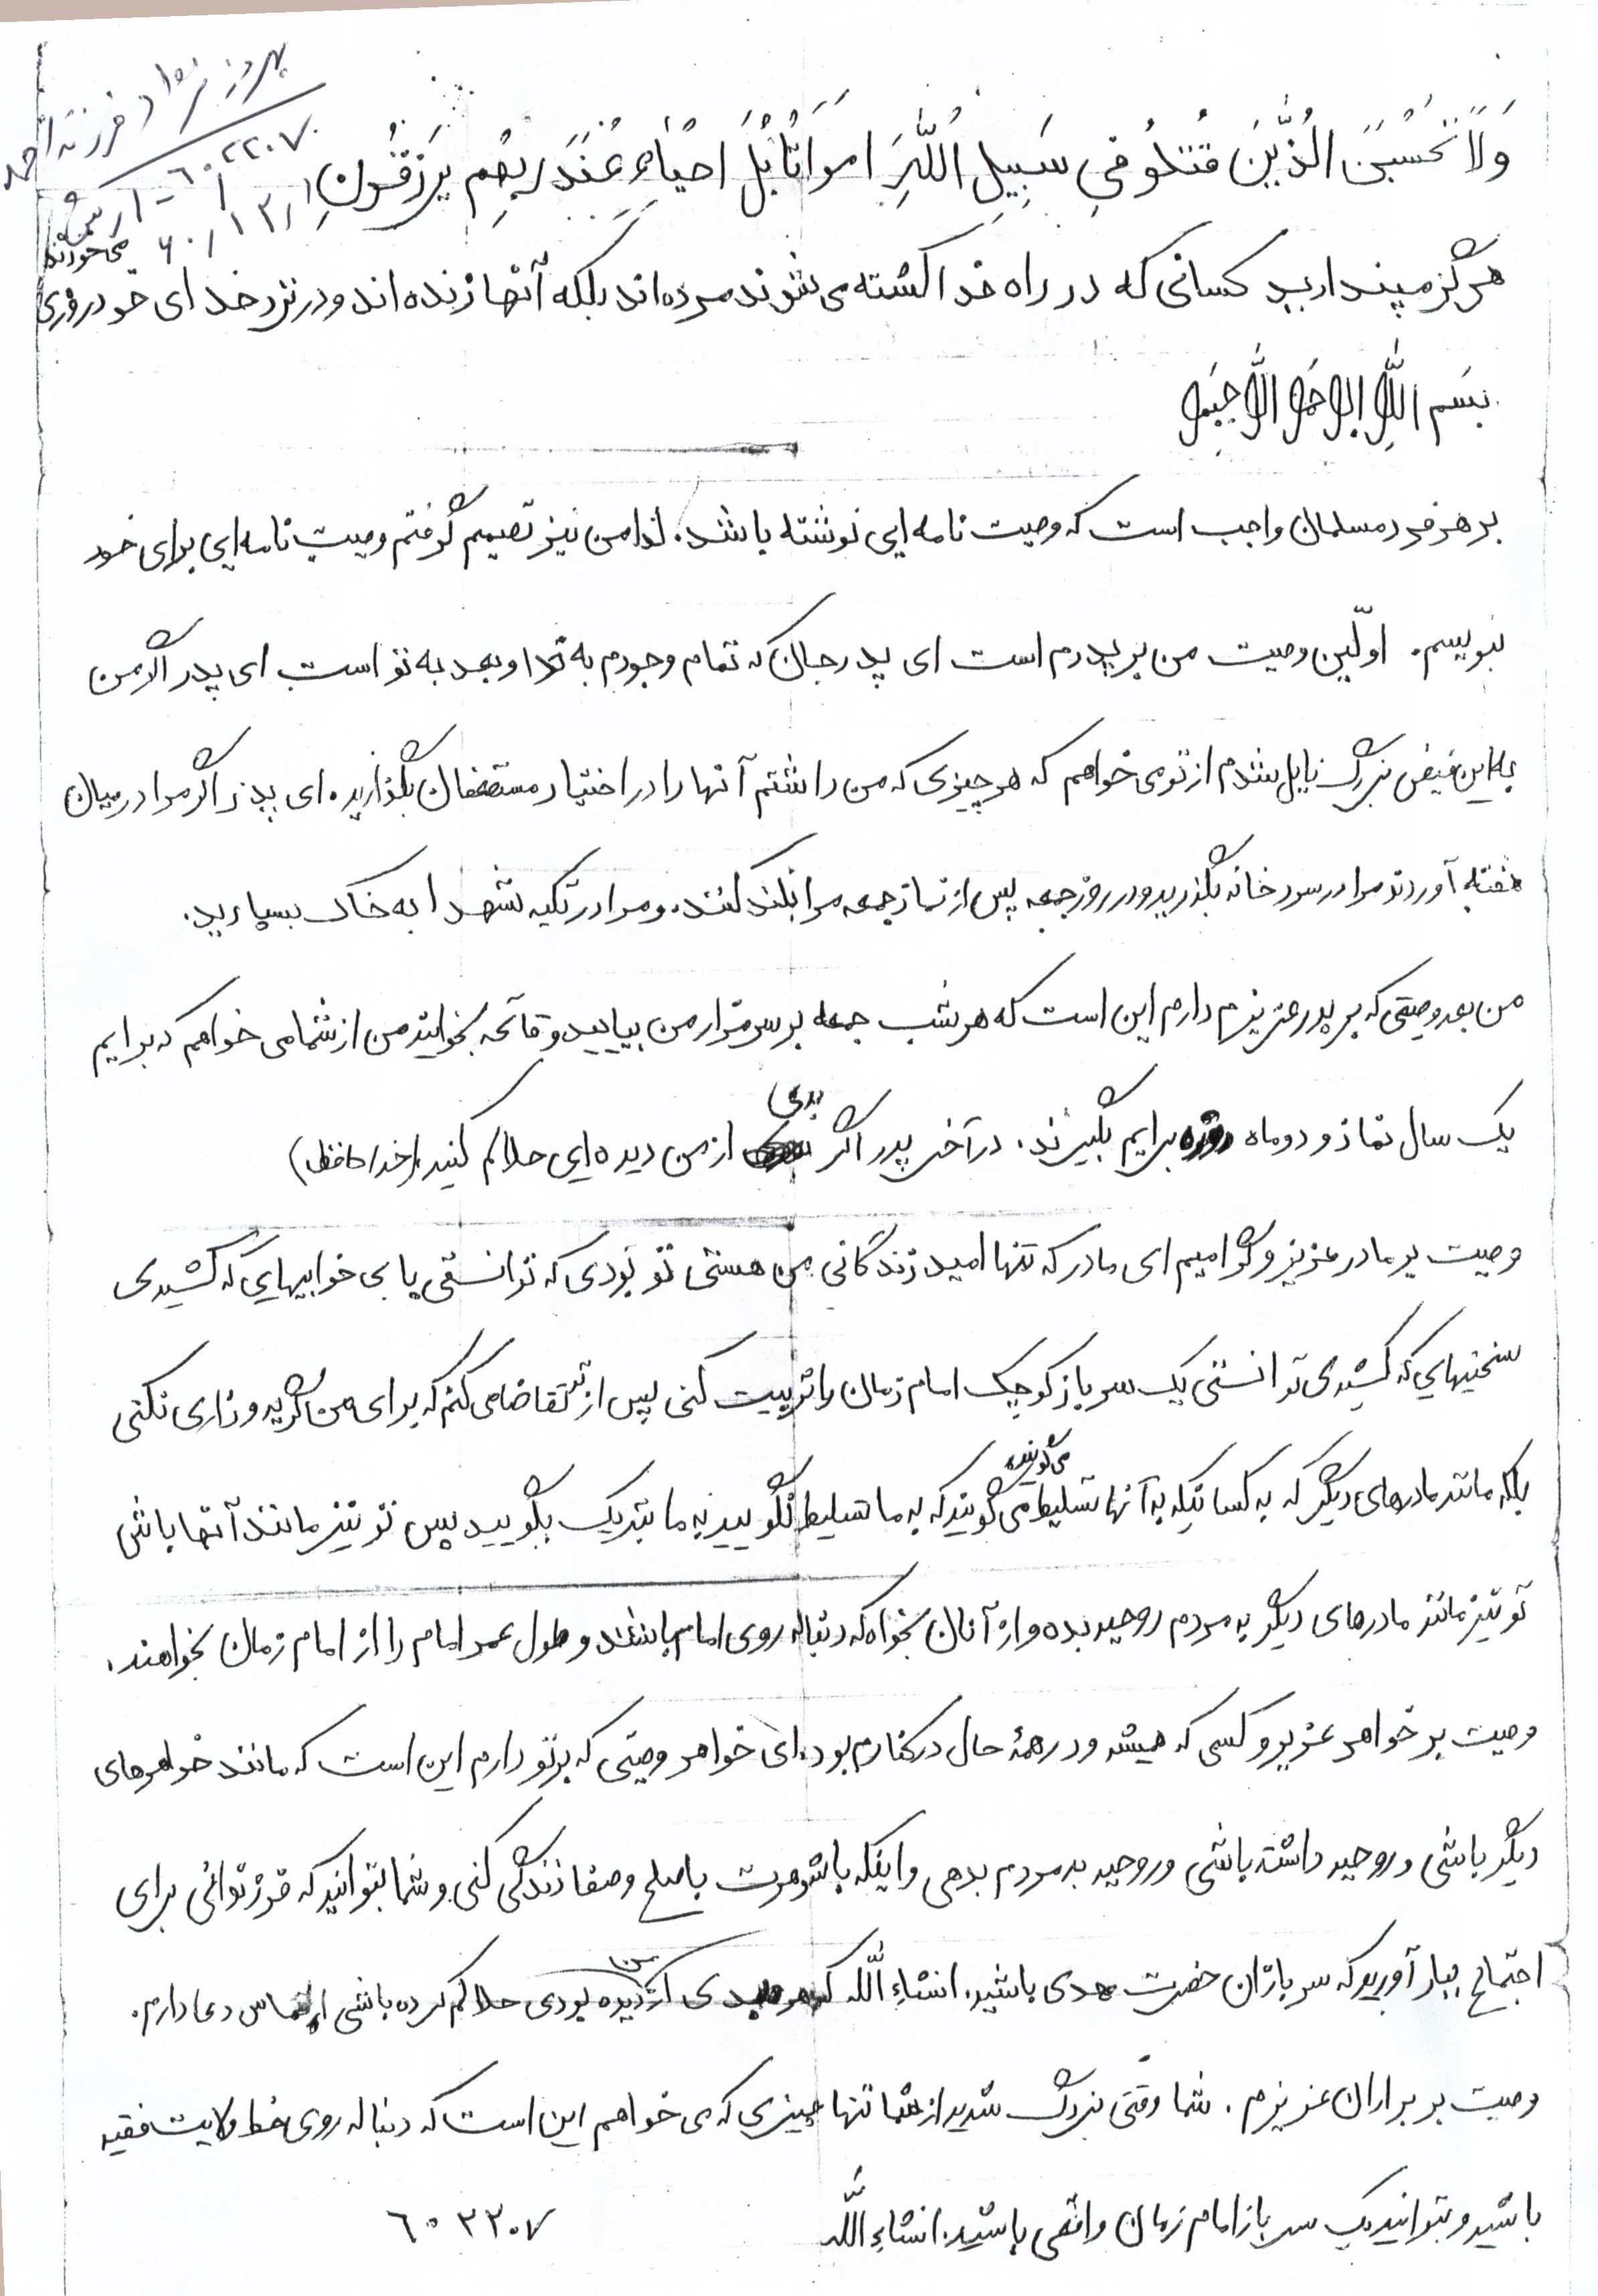 بهروز نژاد فرزند احمد
۶۰۲۲۰۷
۶۰/۱۲/۱
وَلاَ تَحْسَبَنَ الَّذَینَ قُتلوُ فیِ سَبِیلِ اللَّهِ امواتاً بَلْ احیْاءِ عِنَدَ ربِهِم یُرَزقُونِ
هرگز مپندارید کسانی که در راه خدا کشته می شوند مرده اند بلکه آنها زنده اند و در نزد خدای خود روزی می خورند
بسم اللّه الرحمن الرحیم
بر هر فرد مسلمان واجب است که وصیت نامه ایی نوشته باشد. لذا من نیز تصیمم گرفتم وصیت نامه ایی برای خود
بنویسم. اوّلین وصیت من بر پدرم است ای پدر جان که تمام وجودم به خدا و بعد به تو است ای پدر اگر من
به این فیض بزرگ نایل شدم از تو می خواهم که هر چیزی که من داشتم آنها را در اختیار مستضعفان بگذارید. ای پدر اگر مرا در میان
هفته آوردند مرا در سرد خانه بگذرید و در روز جمعه پس از نماز جمعه مرا بلند کنند. و مرا در تکیه شهدا به خاک بسپارید.
من بعد وصیتی که بر پدر عزیزم دارم این است که هر شب جمعه بر سر مزار من بیایید و فاتحه بخوانید من از شما می خواهم که برایم
یک سال نماز و دو ماه روزه برایم بگیرند. در آخر پدر اگر بدی از من دیده ایی حلالم کنید. (خداحافظ)
وصیت بر مادر عزیز و گرامیم ای مادر که تنها امید زندگانی من هستی تو بودی که توانستی با بی خوابیهایی که کشیدی
سختیهایی که کشیدی توانستی یک سرباز کوچک امام زمان را تربیت کنی پس از تو تقاضا می کنم که برای من گریه و زاری نکنی
بلکه مانند مادرهای دیگر که به کسانیکه به آنها تسلیط می گویند می گویند که به ما تسلیط نگویید به ما تبریک بگویید پس تو نیز مانند آنها باش
تو نیز مانند مادرهای دیگر به مردم روحیه بده و از آنان بخواه که دنباله روی امام باشند و طول عمر امام را از امام زمان بخواهند.
وصیت بر خواهر عزیز و کسی که همیشه و در همهٔ حال در کنارم بود. ای خواهر وصیتی که بر تو دارم این است که مانند خواهرهای
دیگر باشی و روحیه داشته باشی و روحیه به مردم بدهی و اینکه با شوهرت با صلح و صفا زندگی کنی و شما بتوانید که فرزندانی برای
اجتماع ببار آورید که سربازان حضرت مهدی باشید. انشاءِ اللّه که بدی از من دیده بودی حلالم کرده باشی التماس دعا دارم.
وصیت بر براران عزیزم. شما وقتی بزرگ شدید از شما تنها چیزی که می خواهم این است که دنباله روی خط ولایت فقیه
باشید و بتوانید یک سرباز امام زمان واقعی باشید. انشاءِ اللّه
۶۰۲۲۰۷